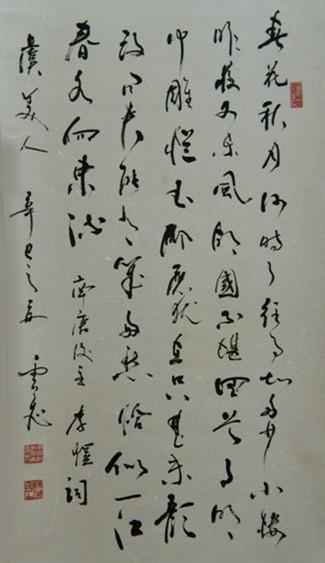 春花秋月何時了往事知多少小樓
昨夜又東風故國不堪回首月明
中雕欄玉砌應猶在只是朱顏
改问君能有幾多愁恰似一江
春水向東流 南唐後主 李煜詞
虞美人 辛巳之 雲